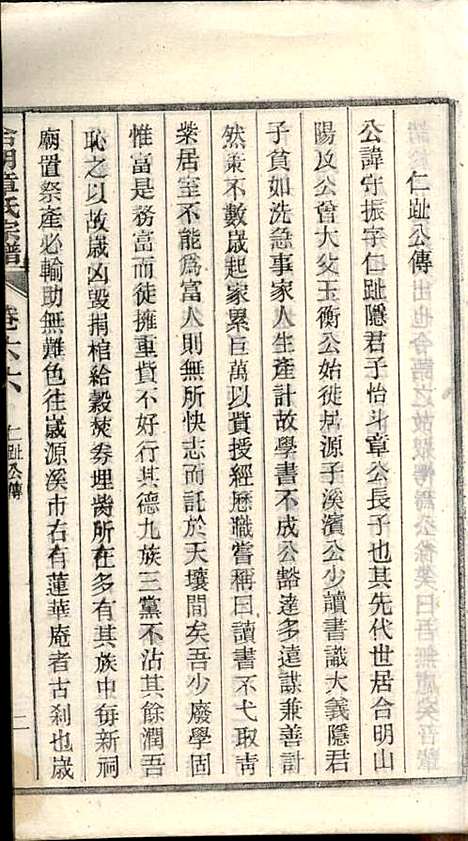 仁趾公傳
公諱守振字仁趾隱君子怡斗章公長子也其先代世居合明山
陽及公曾大父玉衡公始徙居源子溪濱公少讀書識大義隱君
子貧如洗急事家人生產計故學書不成公豁達多遠謀兼善計
然策不數歲起家累巨萬以貲授經歷職嘗稱曰讀書不弋取靑
紫居室不能爲富人則無所快志而託於天壤間矣吾少廢學固
惟富是務富而徒擁重貲不好行其德九族三黨不沾其餘潤吾
恥之以故歲凶毀捐棺給穀焚券埋胔所在多有其族中每新祠
廟置祭產必輸助無難色往歲源溪市右有蓮華庵者古刹也歲
合明章氏宗譜
卷六六
仁趾公傳
二